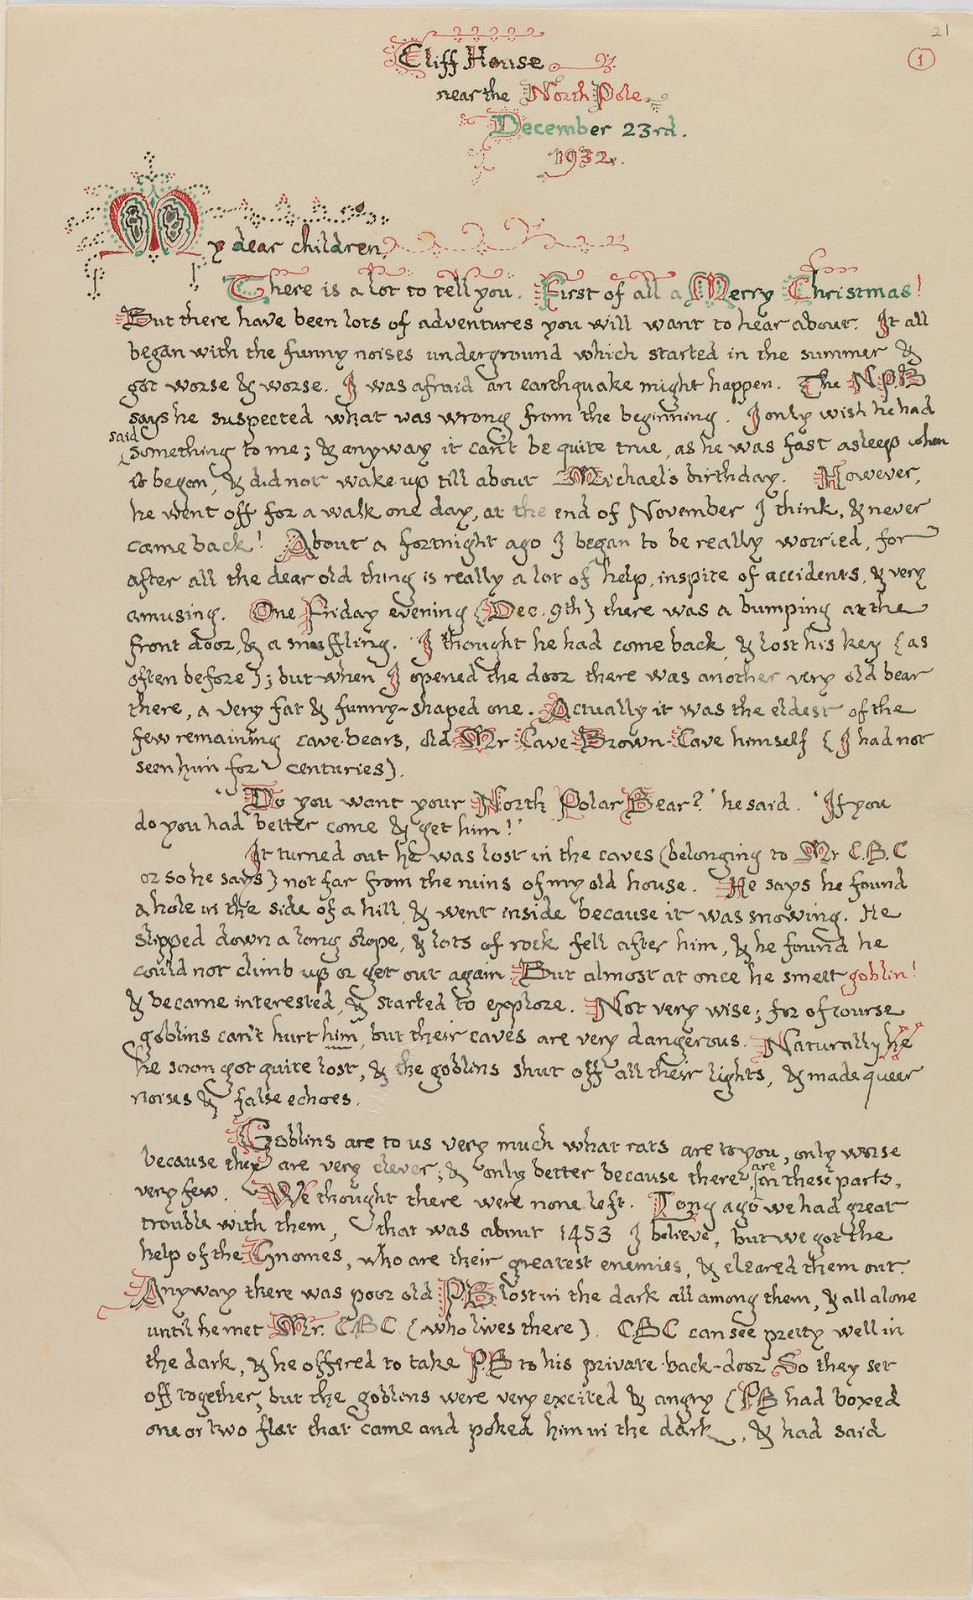 21
1
Cliff House
near the North Pole
December 23rd.
1932.
My dear children,
There is a lot to tell you. First of all a Merry Christmas!
But there have been lots of adventures you will want to hear about. It all
began with the funny noises underground which started in the summer &
got worse & worse. I was afraid an earthquake might happen. The N.P.B
says he suspected what was wrong from the beginning. I only wish he had
said
something to me; & anyway it can't be quite true, as he was fast asleep when
it began, & did not wake up till about Michael's birthday. However,
he went off for a walk one day, at the end of November I think, & never
came back! About a fortnight ago I began to be really worried, for
after all the dear old thing is really a lot of help, inspite of accidents, & very
amusing. One Friday evening (Dec. 9th) there was a bumping at the
front door, & a snuffling. I thought he had come back, & lost his key (as
often before); but when I opened the door there was another very old bear
there, a very fat & funny-shaped one. Actually it was the eldest of the
few remaining cave-bears, old Mr Cave Brown Cave himself (I had not
seen him for centuries).
"Do you want your North Polar Bear?" he said. "If you
do you had better come & get him!"
It turned out he was lost in the caves (belonging to Mr C.B.C
or so he says) not far from the ruins of my old house. He says he found
a hole in the side of a hill, & went inside because it was snowing. He
slipped down a long slope, & lots of rock fell after him, & he found he
could not climb up or get out again. But almost at once he smelt goblin!
& became interested, & started to explore. Not very wise; for of course
goblins can't hurt him, but their caves are very dangerous. Naturally he
he soon got quite lost, & the goblins shut off all their lights, & made queer
noises & false echoes.
Goblins are to us very much what rats are to you, only worse
because they are very clever; & only better because there are in these parts,
very few. We thought there were none left. Long ago we had great
trouble with them, that was about 1453 I believe, but we got the
help of the Gnomes, who are their greatest enemies, & cleared them out.
Anyway there was poor old PB lost in the dark all among them, & all alone
until he met Mr. C.B.C (who lives there). CBC can see pretty well in
the dark, & he offered to take P.B to his private back-door. So they set
off together, but the goblins were very excited & angry (PB had boxed
one or two flat that came and poked him in the dark, & had said